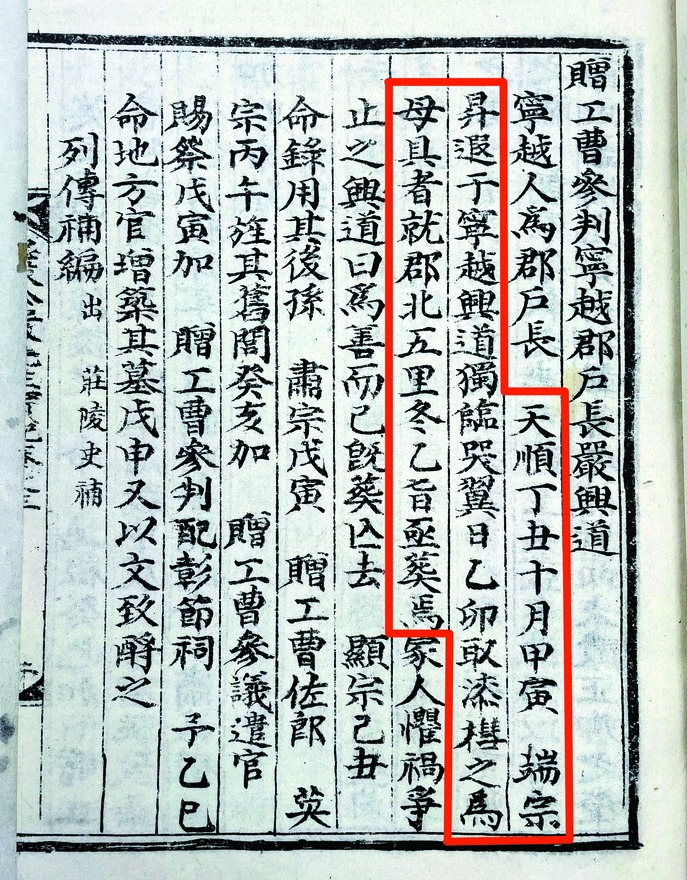 贈工曹參判寧越郡戶長嚴興道
寧越人爲郡戶長 天順丁丑十月甲寅 端宗
昇遐于寧越興道獨臨哭翼日乙卯取漆槥之爲
母具者就郡北五里冬乙旨亟葬焉家人懼禍爭
止之興道曰爲善而已旣葬亾去 顯宗己丑
命錄用其後孫 肅宗戊寅 贈工曹佐郎 英
宗丙午旌其舊閭癸亥加 贈工曹參議遣官
賜祭戊寅加 贈工曹參判配彰節祠 予乙巳
命地方官增築其墓戊申又以文致酹之
列傳補編出 莊陵史補